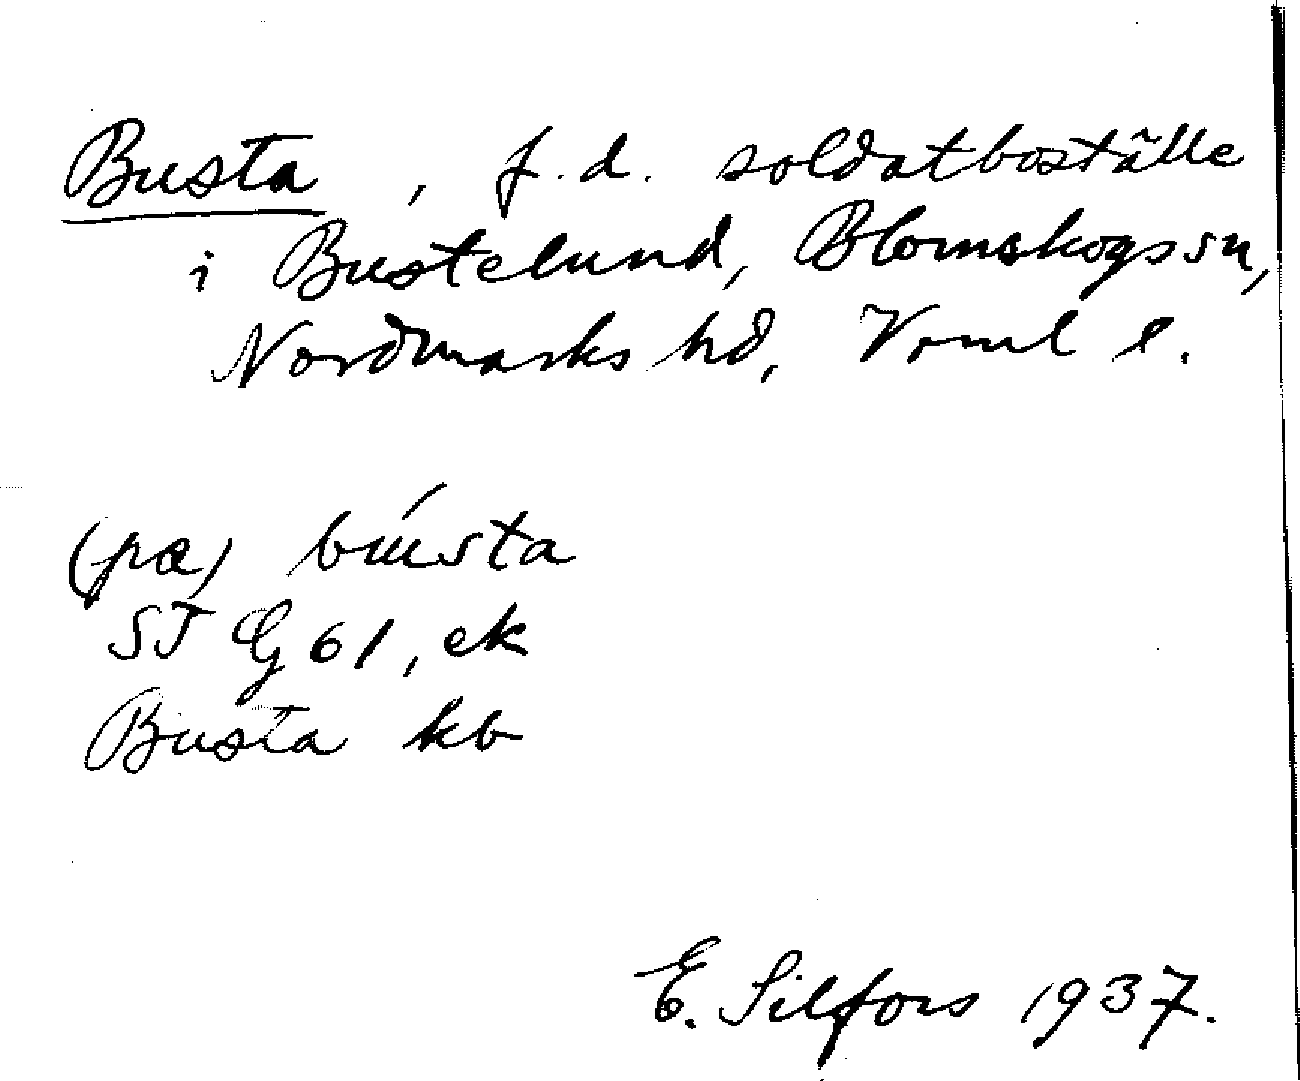 Busta, f.d. soldatboställe
i Bustelund, Blomskogs sn,
Nordmarks hd, Vrml l.
(pœ) bústa
ST G 61, ek
Busta kb
E. Silfors 1937.